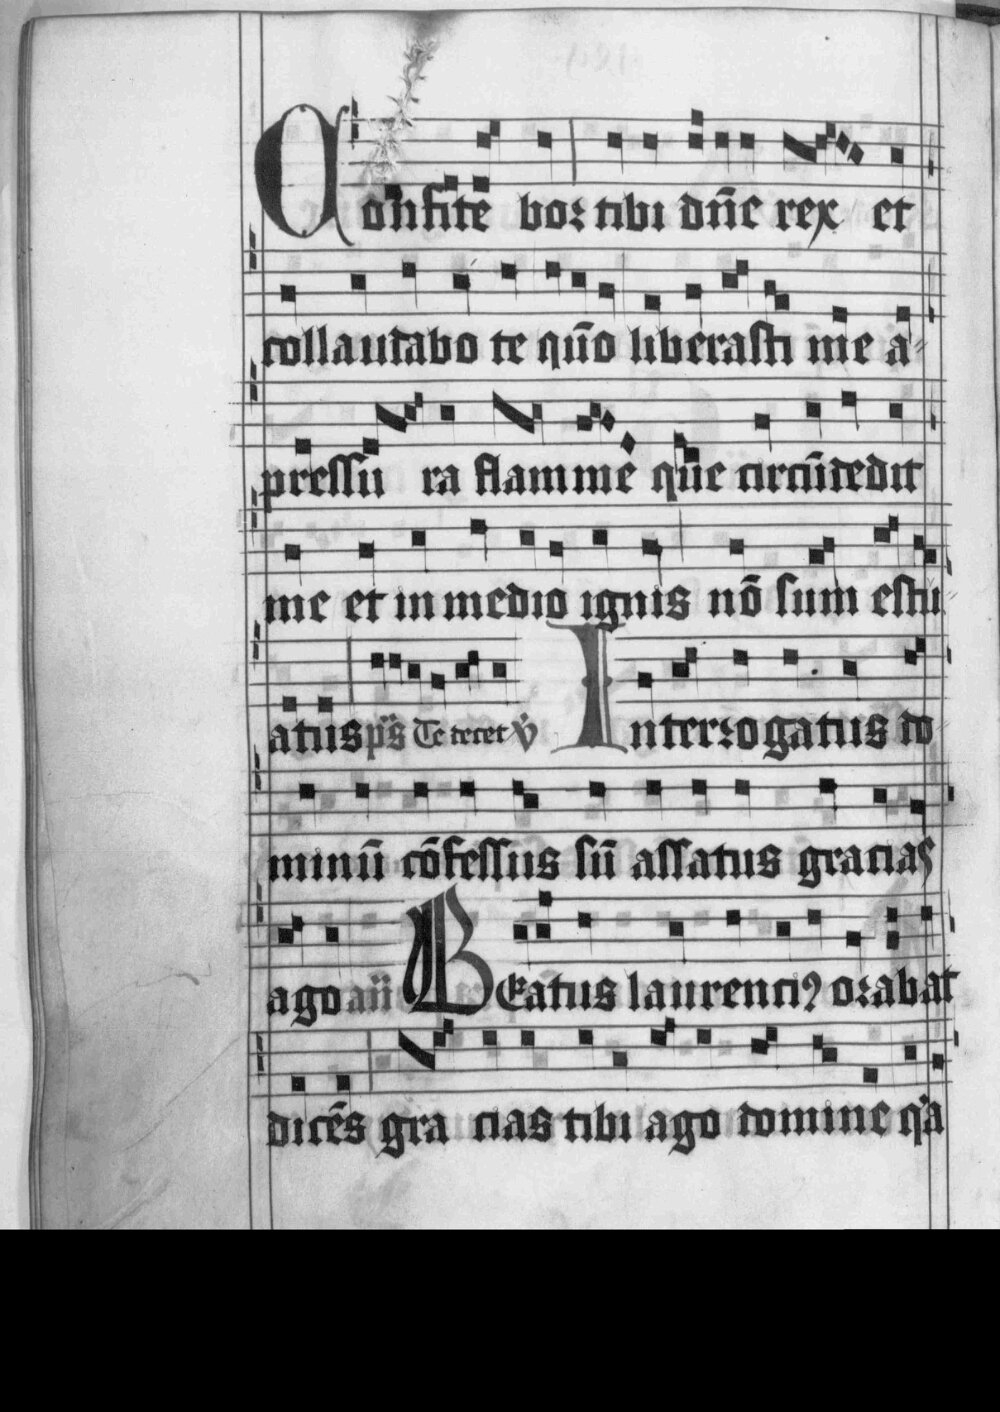 Confite bor tibi dn̄e rex et
collaudabo te qm̄o liberasti me a
pressu ra flamme que circūdedit
me et in medio ignis nō sum estu
atus ps Te decet v̄ Interrogatus do
minū cōfessus sū assatus gracias
ago añ Beatus laurenciꝰ orabat
dicēs gra cias tibi ago domine qͣa